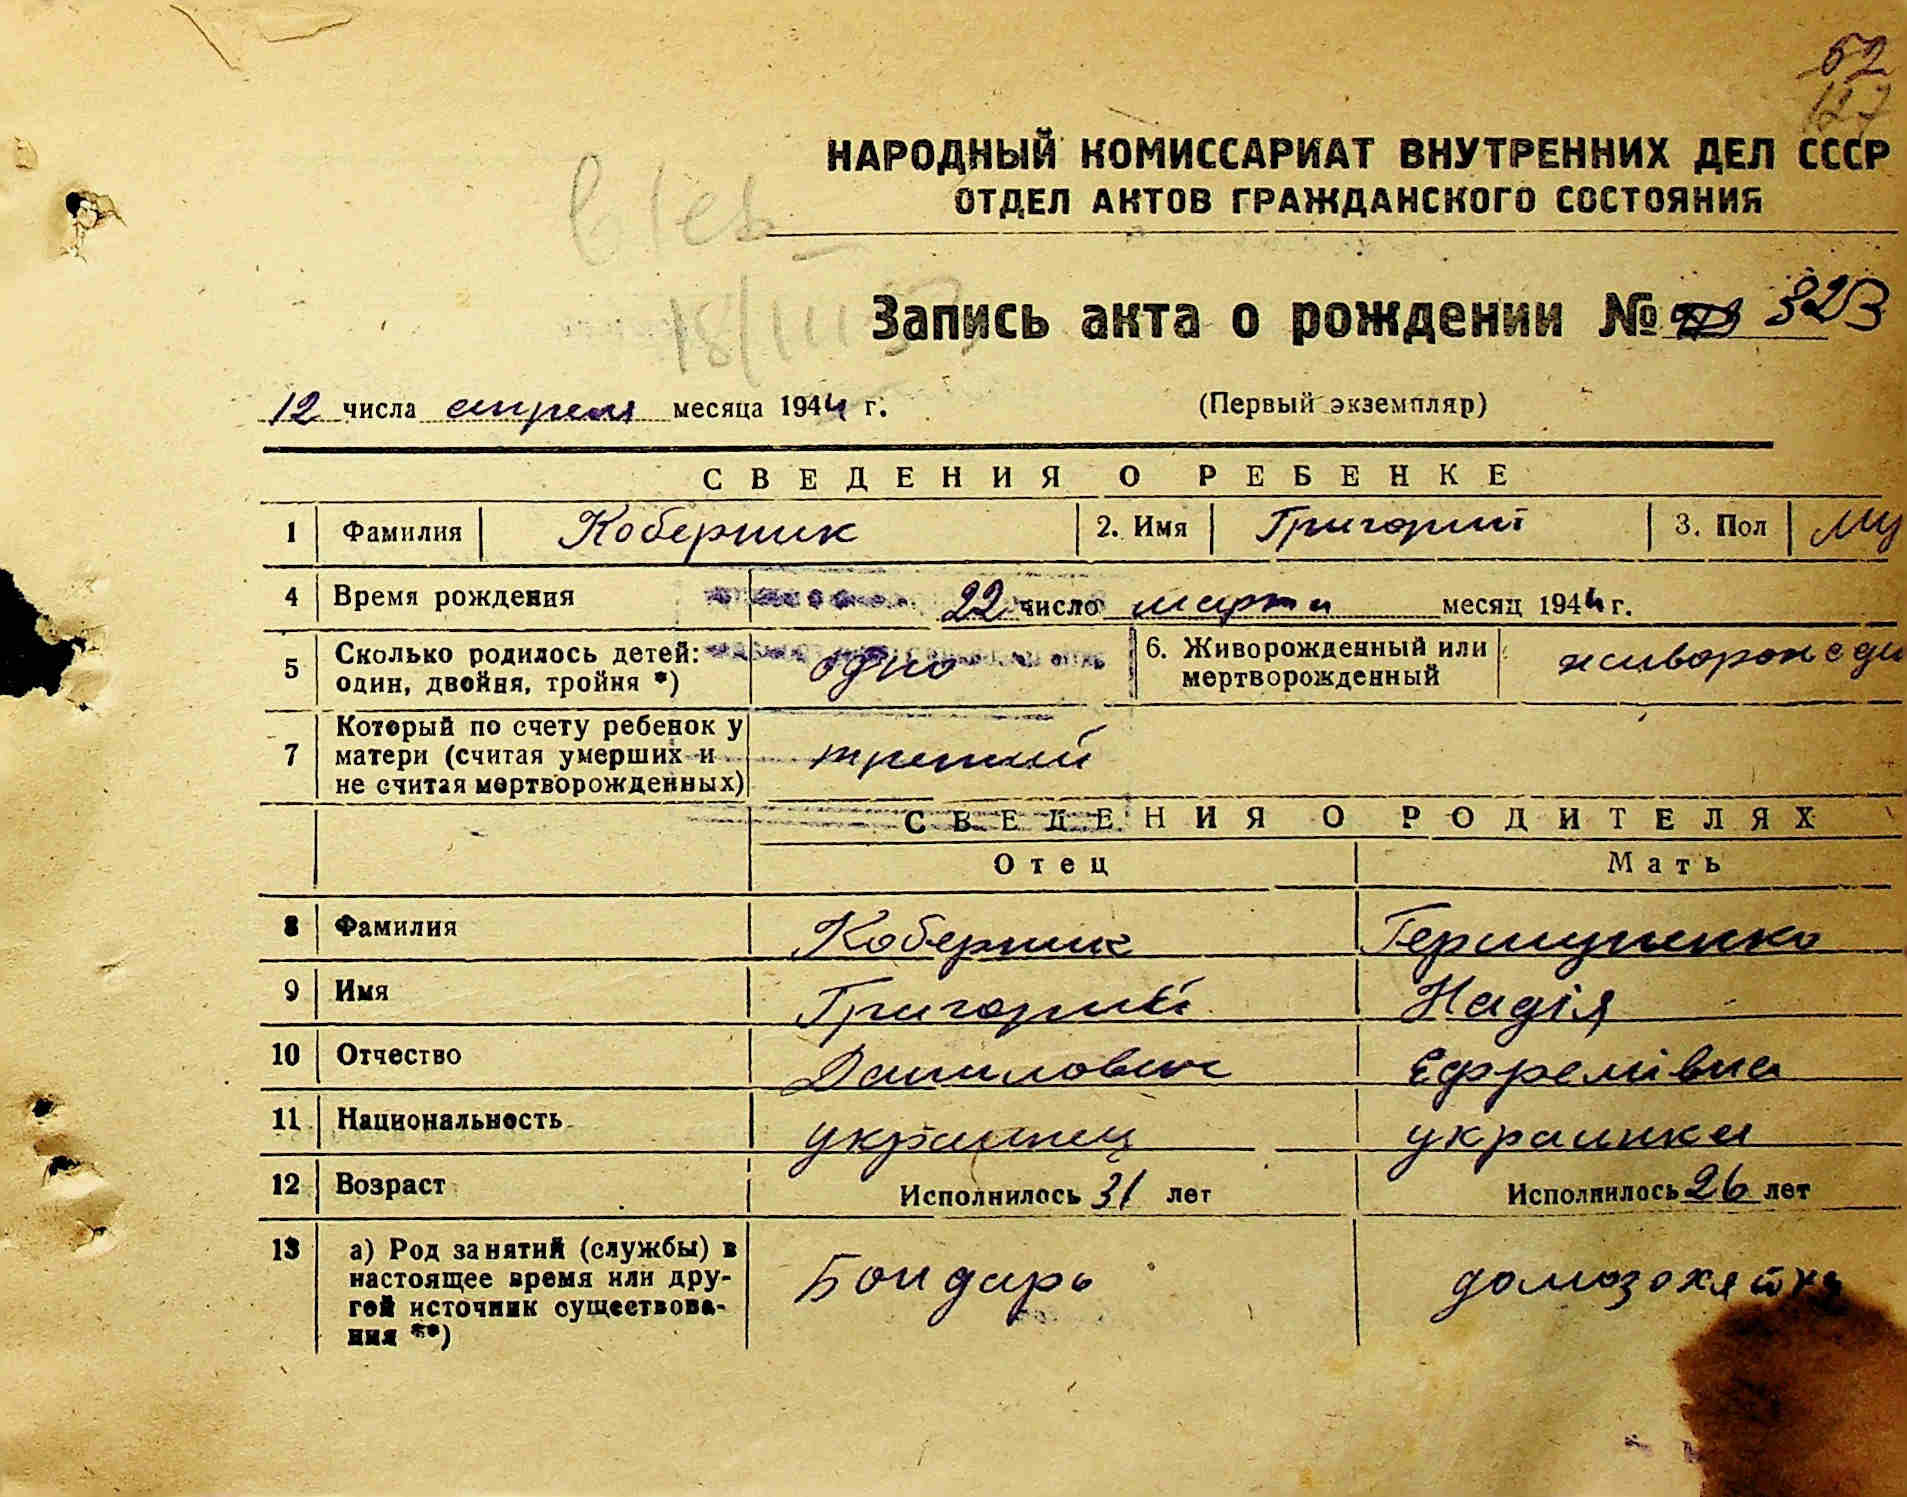 62
127
НАРОДНЫЙ КОМИССАРИАТ ВНУТРЕННИХ ДЕЛ СССР
ОТДЕЛ АКТОВ ГРАЖДАНСКОГО СОСТОЯНИЯ
Запись акта о рождении № 323
12 числа апреля месяца 1944 г. (Первый экземпляр)
СВЕДЕНИЯ О РЕБЕНКЕ
1 Фамилия Коберник 2. Имя Григорий 3. Пол му
4 Время рождения 22 число марта месяц 1944 г.
5 Сколько родилось детей: один, двойня, тройня *) одно 6. Живорожденный или мертворожденный живорожеди
7 Который по счету ребенок у матери (считая умерших и не считая мертворожденных) третий
СВЕДЕНИЯ О РОДИТЕЛЯХ
Отец Мать
8 Фамилия Коберник Гермуненко
9 Имя Григорий Надія
10 Отчество Данилович Ефремівна
11 Национальность украинец украинка
12 Возраст Исполнилось 31 лет Исполнилось 26 лет
13 а) Род занятий (службы) в настоящее время или другой источник существования **) Бондарь домозохяйка